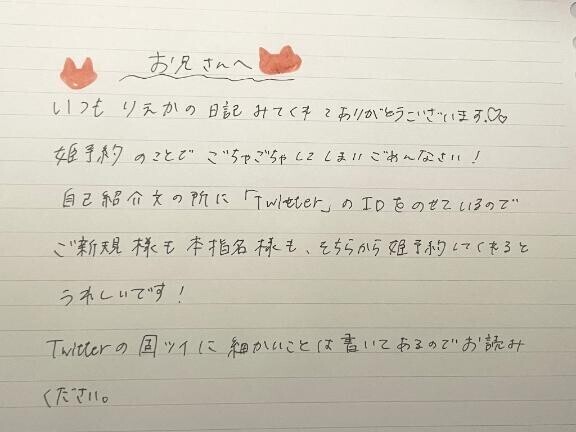 お兄さんへ
いつも りえかの 日記 みてくれてありがとうございます♡♡
姫予約 のことで ごちゃごちゃしてしまいごめんなさい！
自己紹介文の所に「Twitter」のIDをのせているので
ご新規様も 本指名様も、そちらから 姫予約してくれると
うれしいです！
Twitterの固ツイに 細かいことは書いてあるのでお読み
ください。